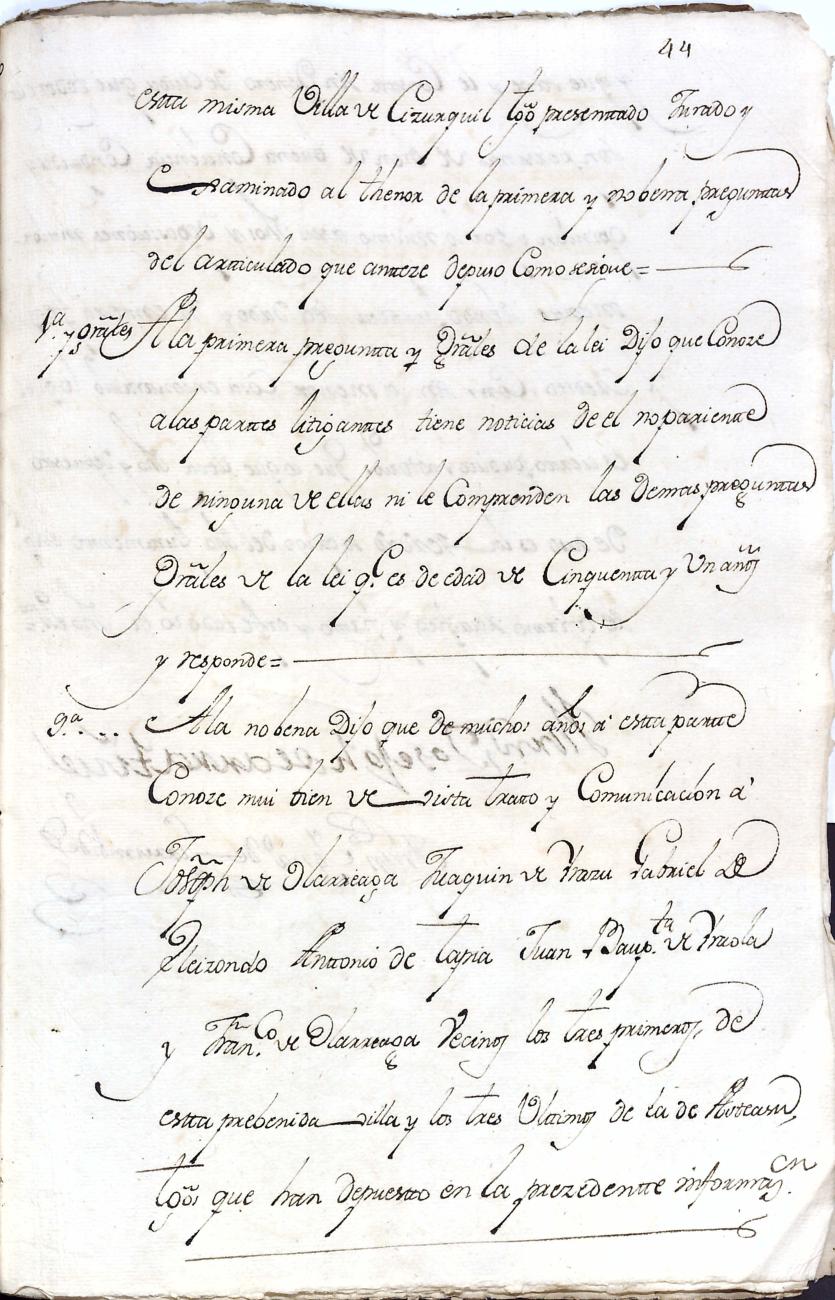 44
estta misma Villa de Cizurquil tgõ presenttado Jurado y
Examinado al thenor de la primera y nobena pregunttas
del artticulado que antteze depuso Como se sigue =
1ª y Grãles A la primera preguntta y Grãles de la lei Dijo que Conoze
a las parttes litiganttes tiene noticias de el no parientte
de ninguna de ellas ni le Comprenden las demas pregunttas
Grãles de la lei q.e es de edad de Cinquentta y Un años
y responde =
9.ª .. A la nobena Dijo que de muchos años â estta partte
Conoze mui bien de vista tratto y Comunicacion â
Joseph de Olarreaga Juaquin de Yrazu Gabriel de
Eleizondo Anttonio de tapia Juan Baup.ta de Yraola
y Fran.co de Olarreaga Vecinos los tres primeros, de
estta prebenida villa y los tres Ultimos de la de Asteasu,
tgõs que han depuestto en la prezedentte informaz.on